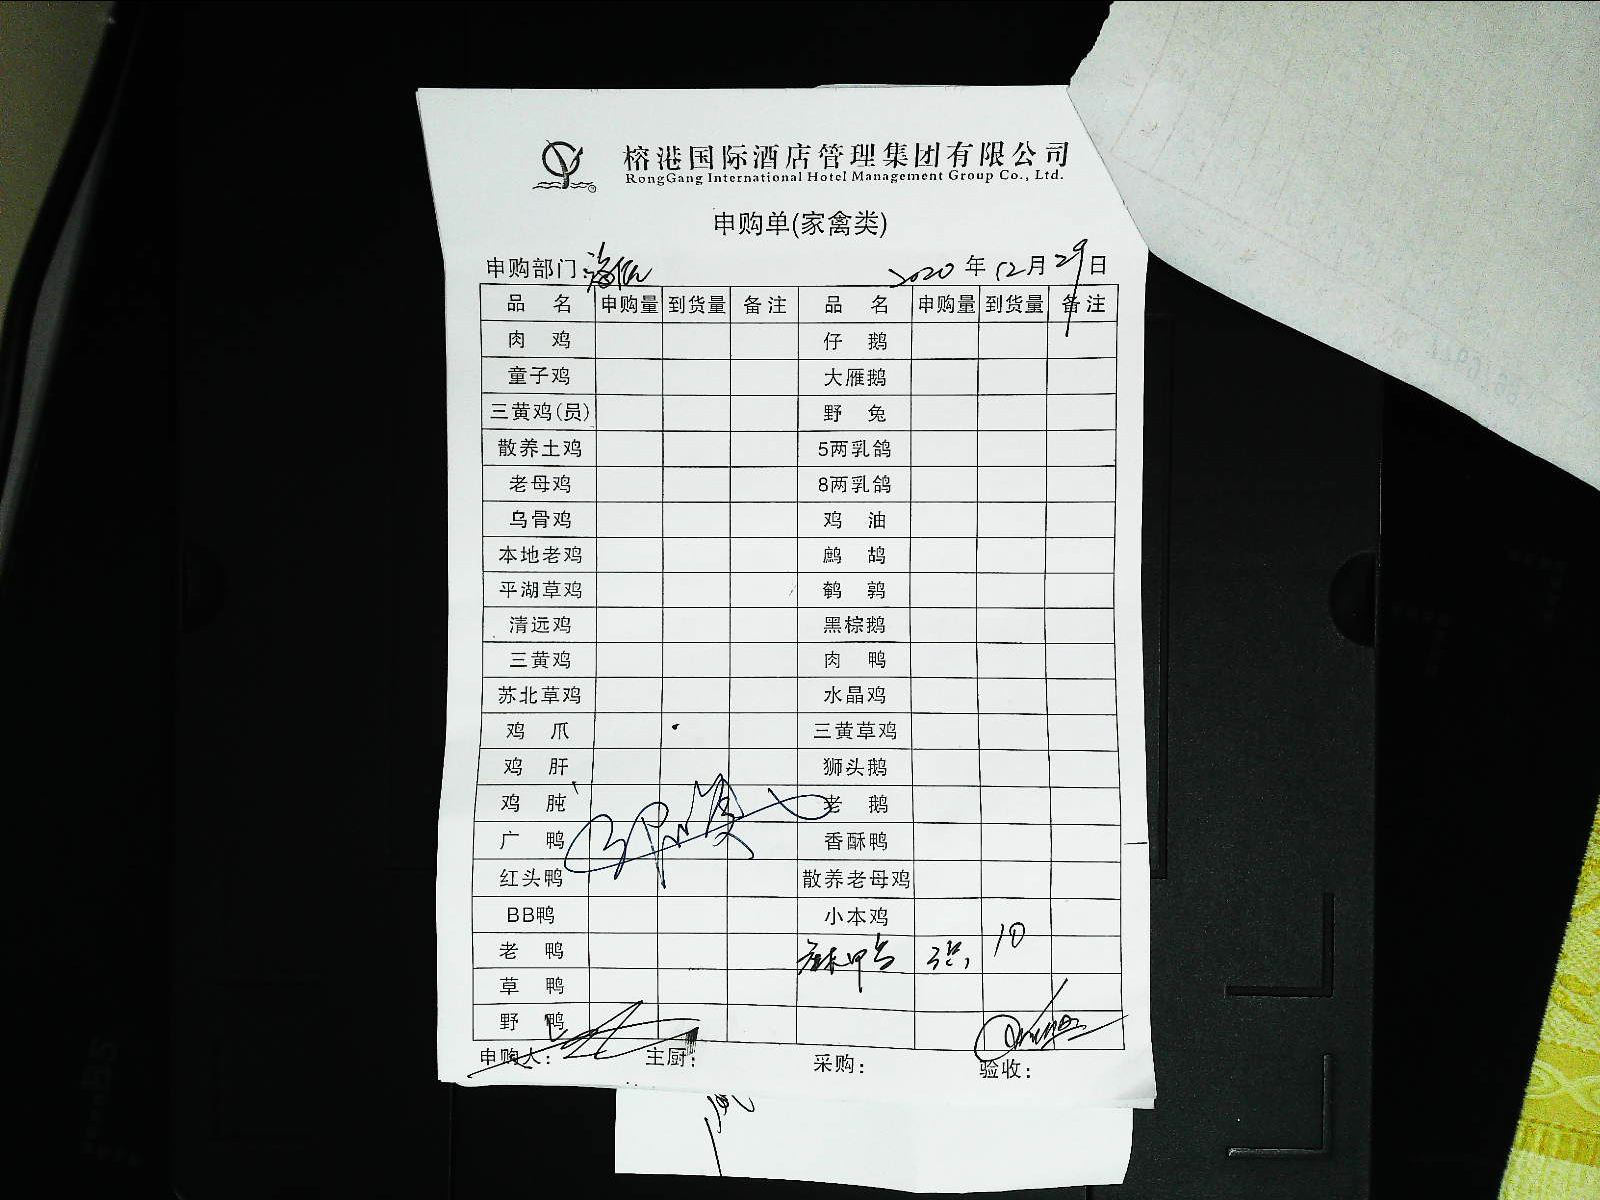 榕港国际酒店管理集团有限公司
RongGang International Hotel Management Group Co., Ltd.
申购单(家禽类)
申购部门: 2020年12月29日
品 名 申购量 到货量 备注 品 名 申购量 到货量 备注
肉 鸡 仔 鹅
童子鸡 大雁鹅
三黄鸡(员) 野 兔
散养土鸡 5两乳鸽
老母鸡 8两乳鸽
乌骨鸡 鸡 油
本地老鸡 鹧 鸪
平湖草鸡 鹌 鹑
清远鸡 黑棕鹅
三黄鸡 肉 鸭
苏北草鸡 水晶鸡
鸡 爪 三黄草鸡
鸡 肝 狮头鹅
鸡 肫 老 鹅
广 鸭 香酥鸭
红头鸭 散养老母鸡
BB鸭 小本鸡
老 鸭 麻鸭 10
草 鸭
野 鸭
申购人: 主厨: 采购: 验收: